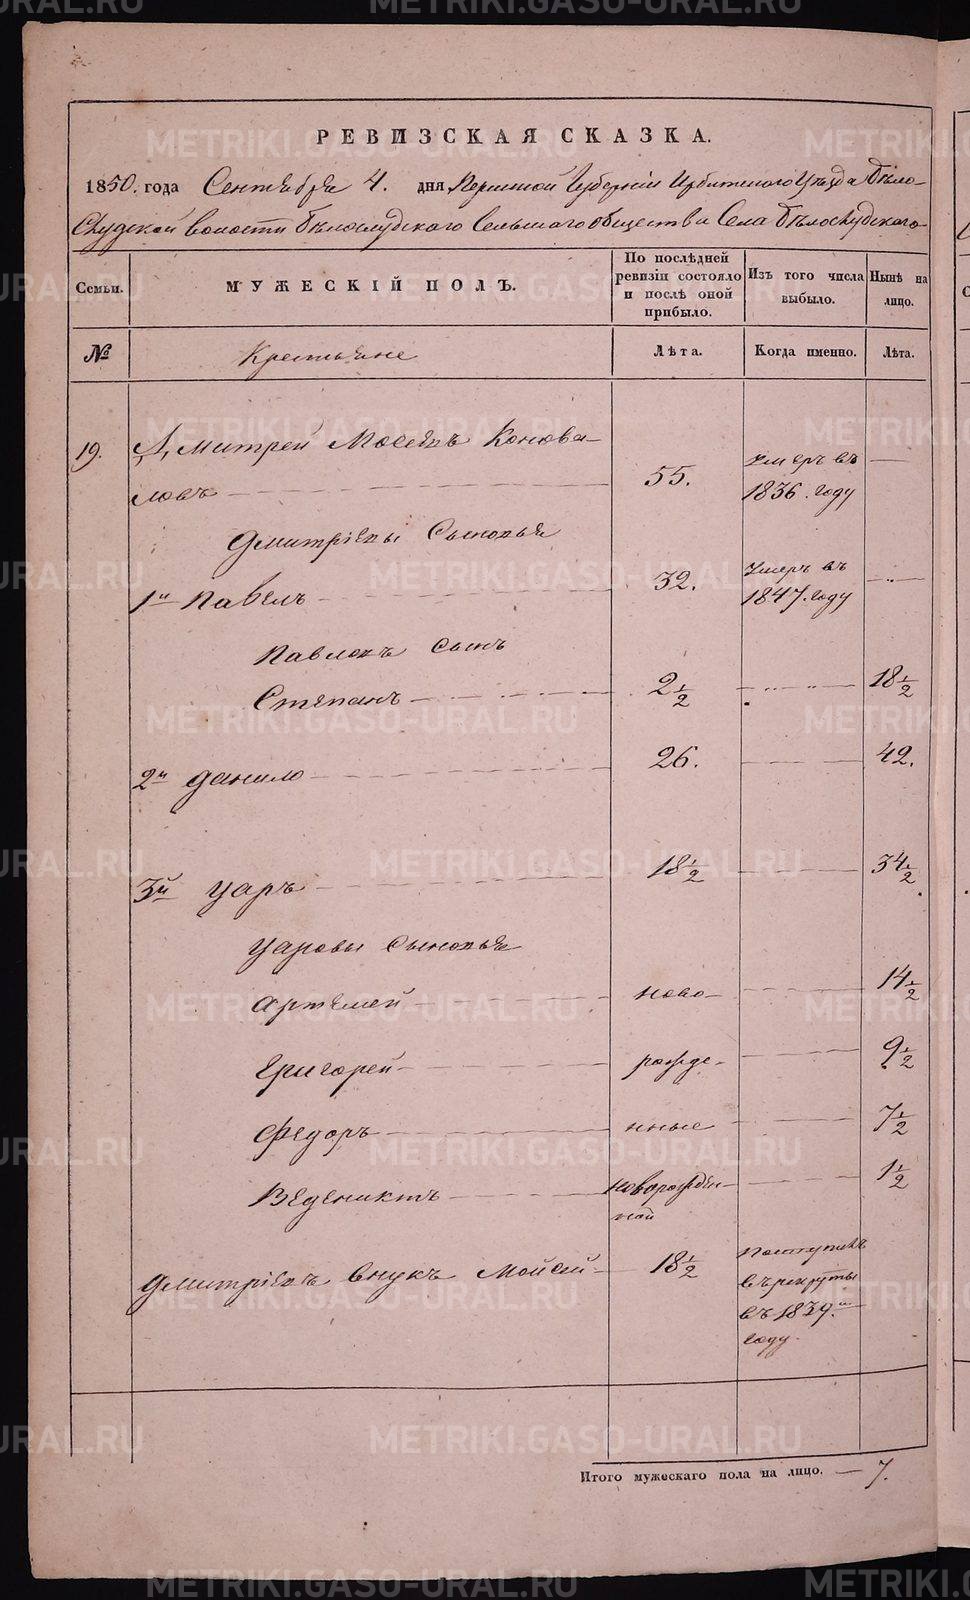 РЕВИЗСКАЯ СКАЗКА.
1850. года Сентября 4. дня Пермской Губерніи Ирбитскаго Уѣзда Бѣло-
Слудской волости Бѣлослудскаго Сельскаго Общества Села Бѣлослудскаго
Семьи.
МУЖЕСКІЙ ПОЛЪ.
По послѣдней ревизіи состояло и послѣ оной прибыло.
Изъ того числа выбыло.
Нынѣ на лицо.
№
Крестьяне
Лѣта.
Когда именно.
Лѣта.
19. Дмитрей Мосеевъ Конова-
ловъ 55. Умеръ въ 1836. году
Дмитріевы Сыновья
1й Павелъ 32. Умеръ въ 1847. году
Павловъ сынъ
Степанъ 2 1/2 18 1/2
2й Данило 26. 42.
3й Уаръ 18 1/2 34 1/2
Уаровы Сыновья
Артемей ново- 14 1/2
Григорей рожде- 9 1/2
Федоръ нные 7 1/2
Веденихтъ новорожден-ной 1 1/2
Дмитріевъ внукъ Мойсей 18 1/2 Поступилъ въ рекруты въ 1839.м году.
Итого мужескаго пола на лицо. — 7.
METRIKI.GASO-URAL.RU